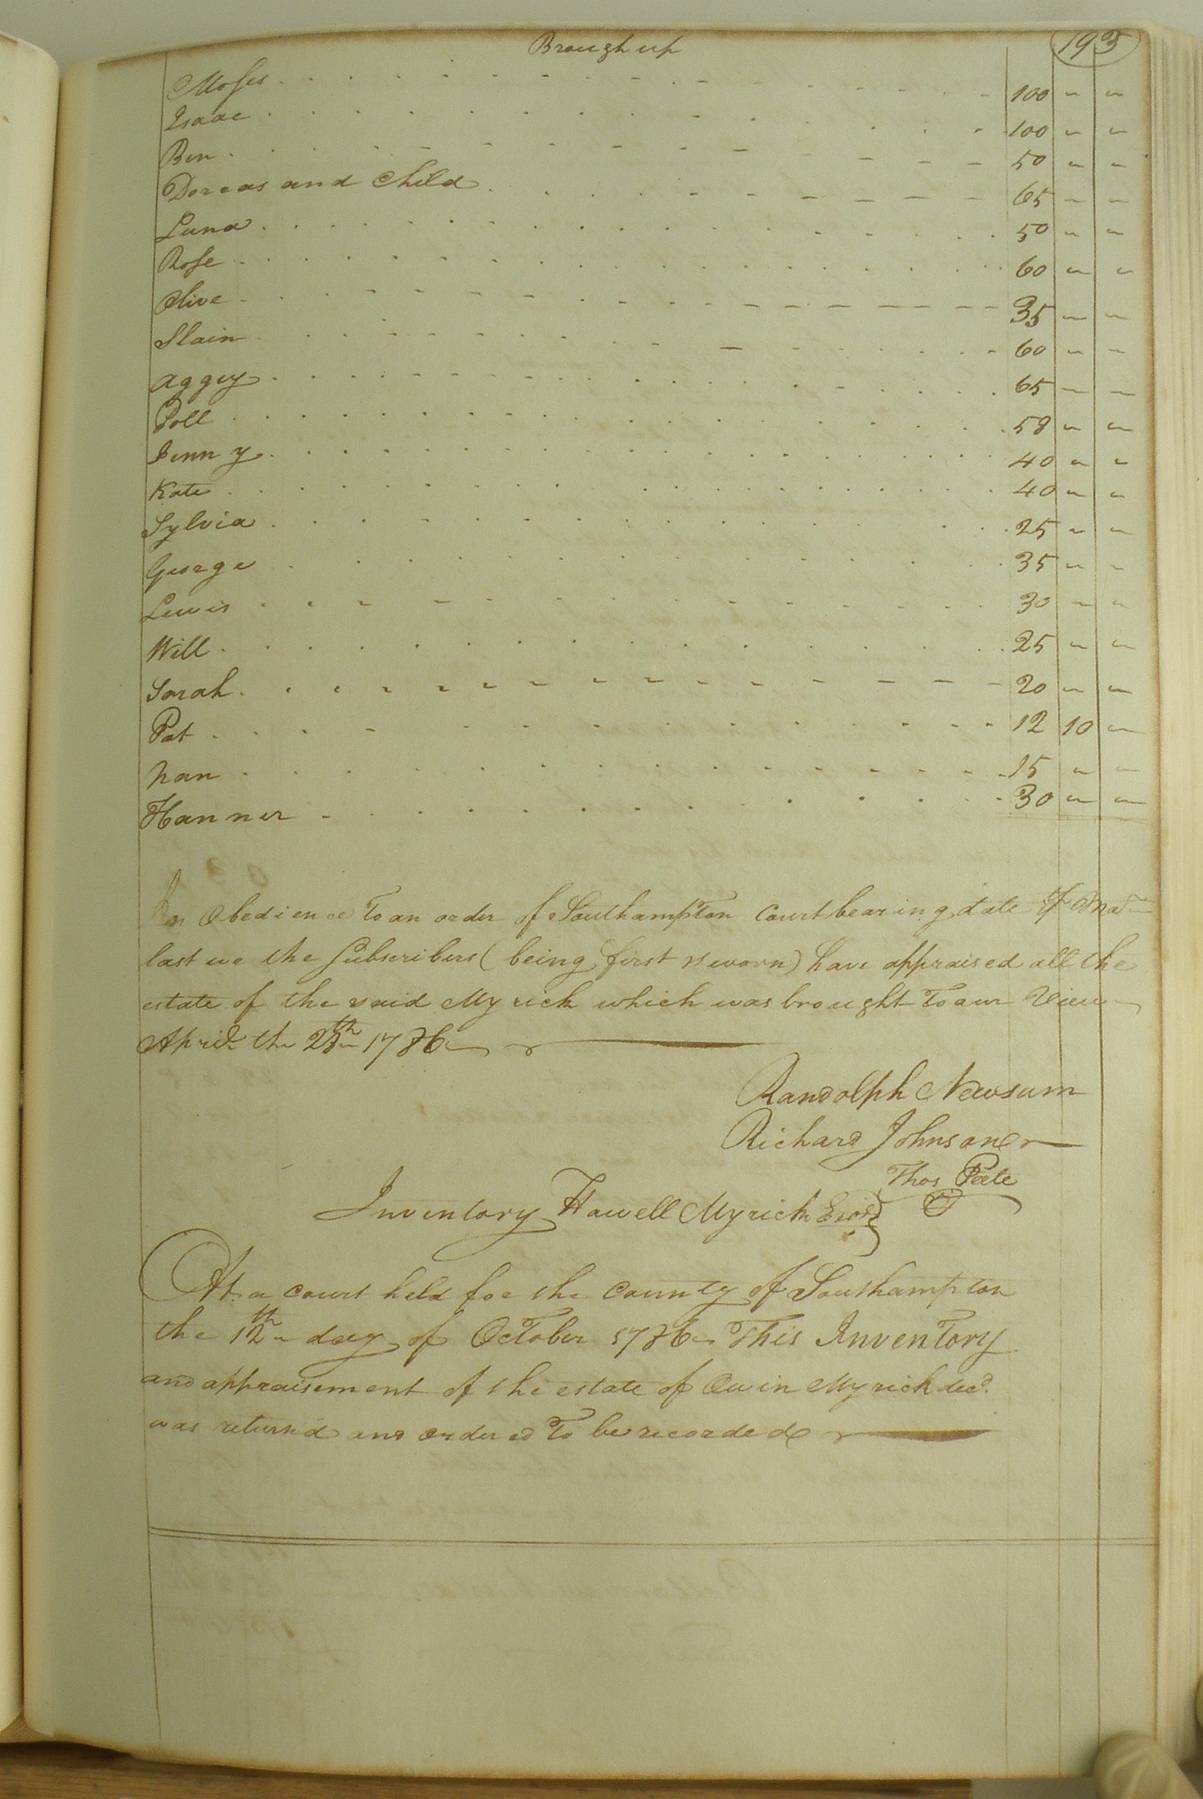 Brough up 193
Moses 100 " "
Isaac 100 " "
Ben 50 " "
Dorcas and Child 65 " "
Luna 50 " "
Rose 60 " "
Olive 35 " "
Slain 60 " "
Aggey 65 " "
Poll 58 " "
Jenny 40 " "
Kate 40 " "
Sylvia 25 " "
George 35 " "
Lewis 30 " "
Will 25 " "
Sarah 20 " "
Pat 12 10 "
Nan 15 " "
Hanner 30 " "
In Obedience To an order of Southampton Court bearing date
last we the Subscribers (being first sworn) have appraised all the
estate of the said Myrick which was brought To our View
April the 28th 1786
Randolph Newsum
Richard Johnson
Thos Peete
Inventory Howell Myrick Exor
At a court held for the County of Southampton
the 12th day of October 1786 This Inventory
and appraisement of the estate of Owin Myrick decd.
was returnd and ordered To be recorded